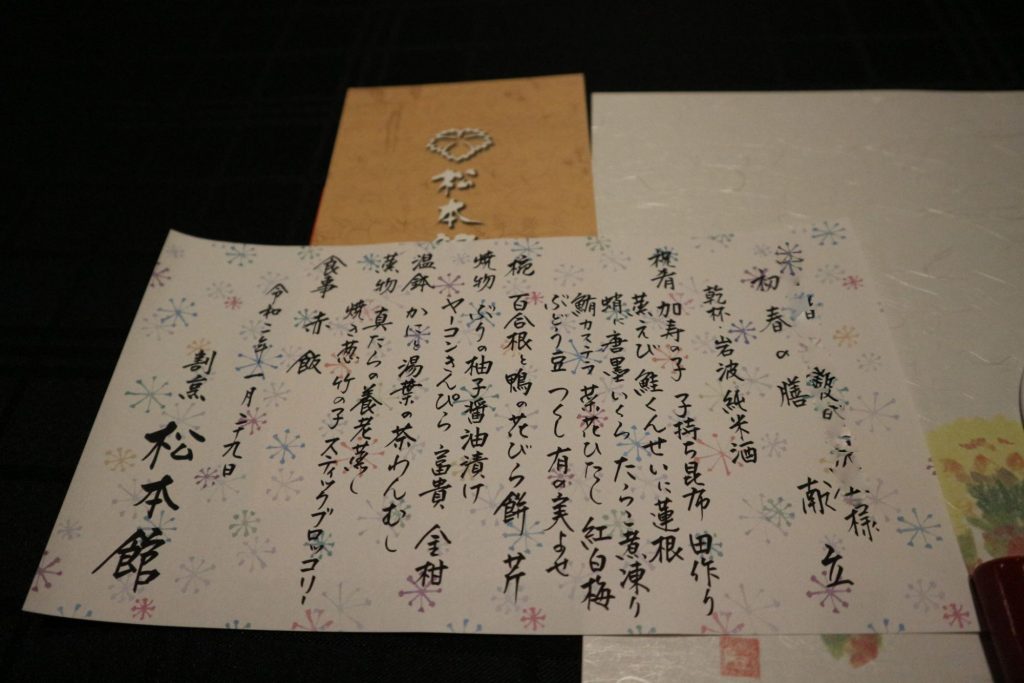 様
献立
初春の膳
乾杯 岩波純米酒
祝肴 加寿の子 子持ち昆布 田作り
蒸えび 鮭くんせいに蓮根
蛸に唐墨 いくら たらこ煮凍り
鮪カステラ 菜花ひたし 紅白梅
ぶどう豆 つくし 有の実よせ
椀 百合根と鴨の花びら餅 芹
焼物 ぶりの柚子醤油漬け
ヤーコンきんぴら 富貴 金柑
温鉢 かに 湯葉の茶わんむし
蒸物 真たらの養老蒸し
焼き葱 竹の子 スティックブロッコリー
食事 赤飯
令和二年一月二十九日
割烹 松本館
松本